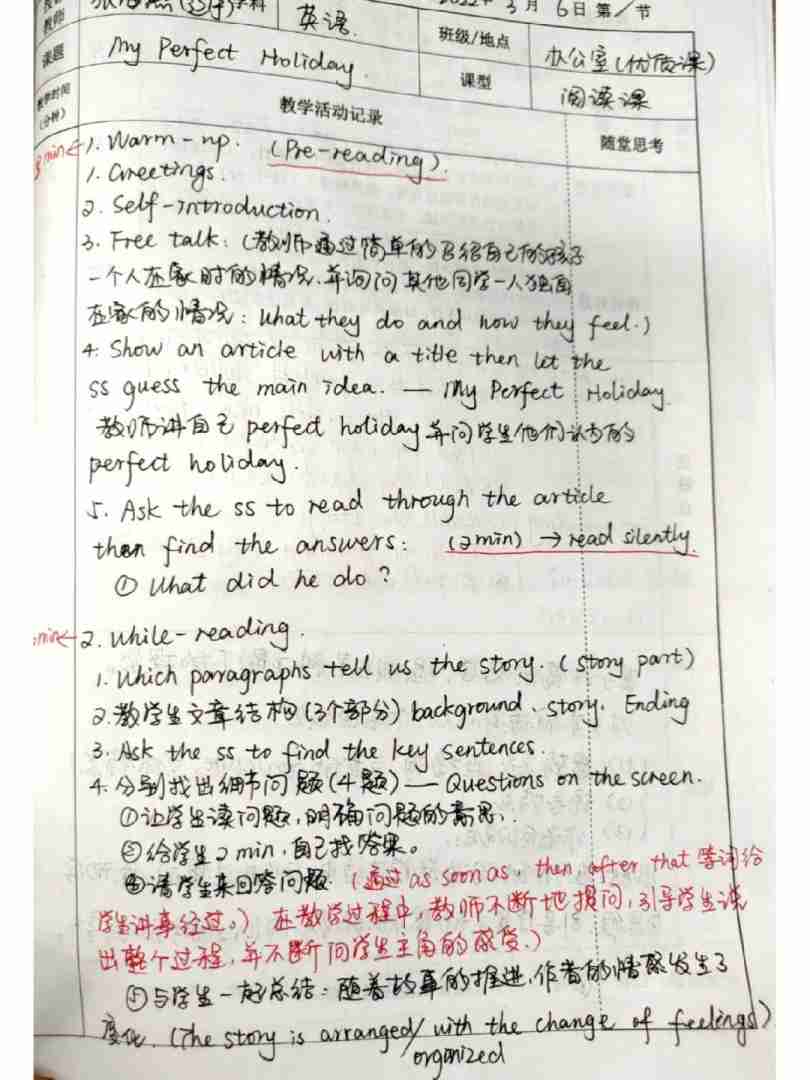 教师 学科 英语 2022年 3月 6日 第1节
课题 My Perfect Holiday. 班级/地点 办公室(优质课)
课型 阅读课
教学时间(分钟) 教学活动记录 随堂思考
min← 1. Warm-up. (Pre-reading).
1. Greetings.
2. Self-introduction.
3. Free talk: (教师通过简单的介绍自己的孩子
一个人在家时的情况,并询问其他同学一人独自
在家的情况: What they do and how they feel.)
4. Show an article with a title then let the
ss guess the main idea. — My Perfect Holiday.
教师讲自己 perfect holiday 并问学生他们认为的
perfect holiday.
5. Ask the ss to read through the article
then find the answers: (2min) → read silently.
① What did he do?
min← 2. While-reading.
1. Which paragraphs tell us the story. (story part)
2. 教学生文章结构(3个部分) background, story, Ending
3. Ask the ss to find the key sentences.
4. 分别找出细节问题(4题) — Questions on the screen.
①让学生读问题,明确问题的意思.
②给学生2 min,自己找答案。
请学生来回答问题. (通过as soon as, then, after that 等词给
学生讲事经过。) 在教学过程中,教师不断地提问,引导学生说
出整个过程,并不断问学生主角的感受.)
与学生一起总结:随着故事的推进,作者的情感发生了
变化. (The story is arranged/ with the change of feelings)
organized